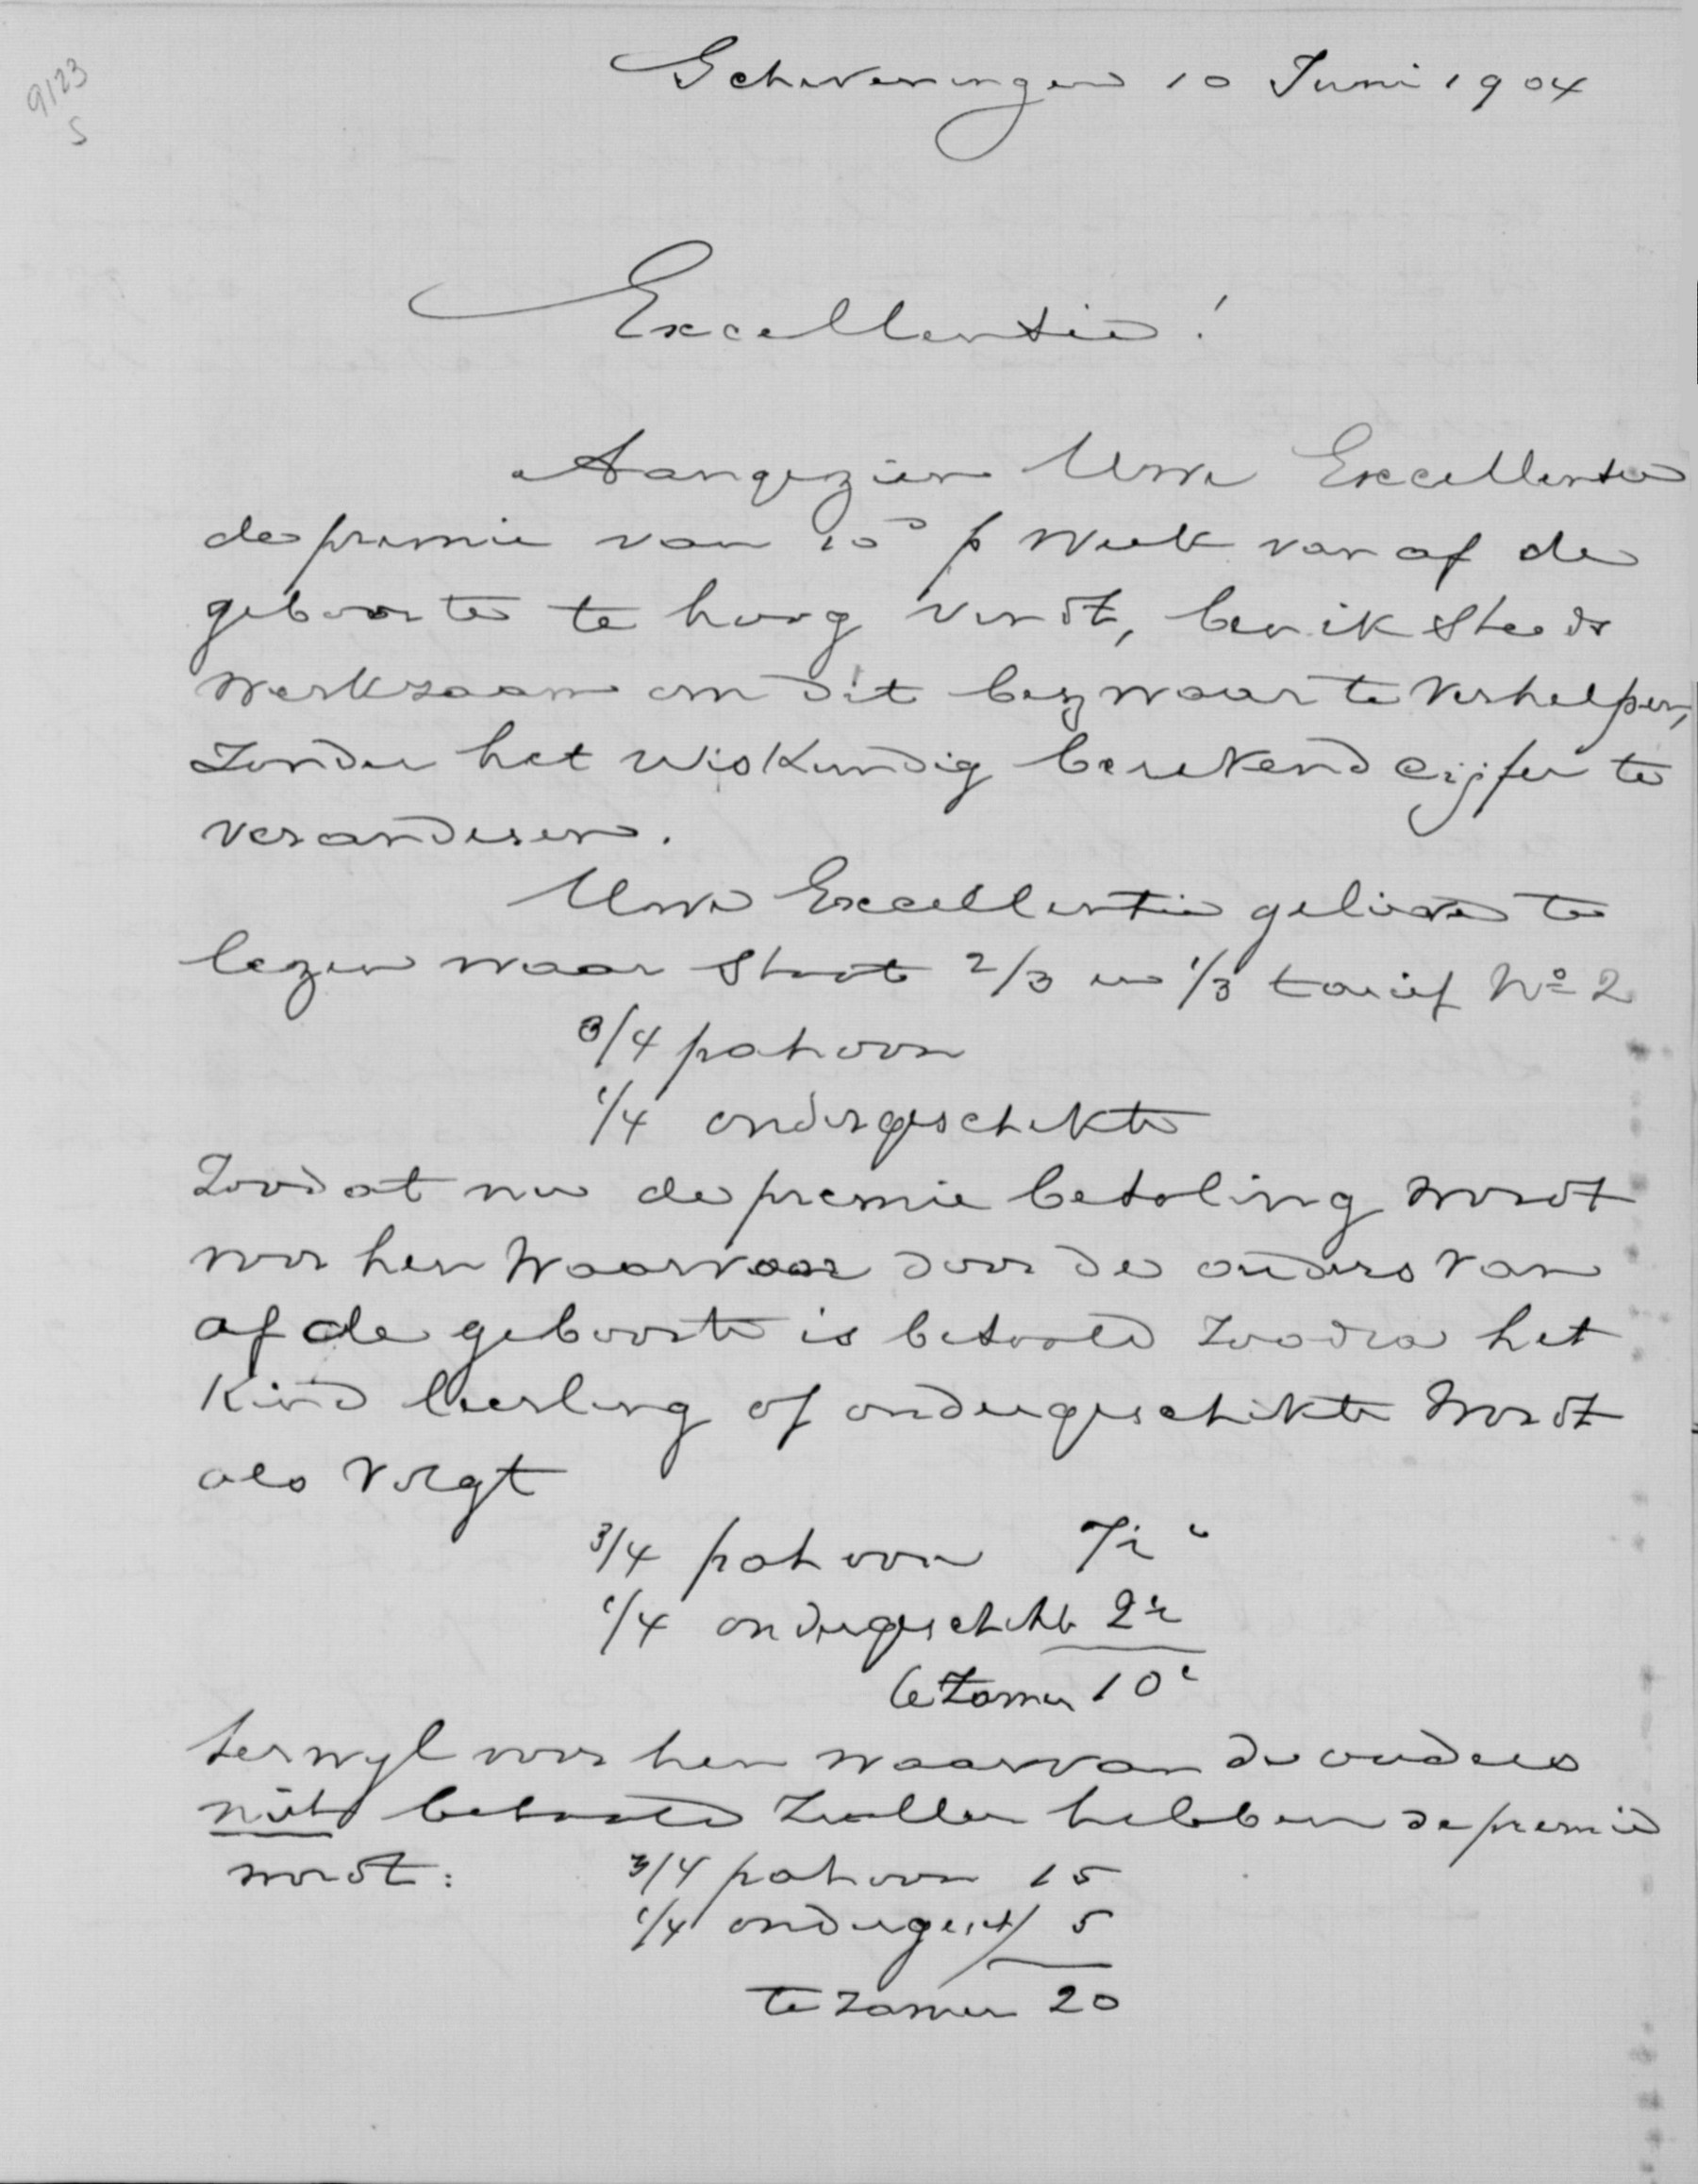 9123
5
Scheveningen 10 Juni 1904
Excellentie!
Aangezien Uwe Excellentie
de premie van 10c p week van af de
geboorte te hoog vindt, ben ik steeds
werkzaam om dit bezwaar te verhelpen,
zonder het wiskundig berekend cijfer te
veranderen.
Uwe Excellentie gelieve te
lezen waar staat 2/3 en 1/3 tarief No 2
3/4 patroon
1/4 ondergeschikte
Zoodat nu de premie betaling wordt
voor hen waarvoor door de ouders van
af de geboorte is betaald zoodra het
kind leerling of ondergeschikte wordt
als volgt
3/4 patroon 7½ c
1/4 ondergeschikte 2½
te zamen 10 c
terwyl voor hen waarvan de ouders
niet betaald zullen hebben de premie
wordt: 3/4 patroon 15
1/4 ondergesch/ 5
te zamen 20